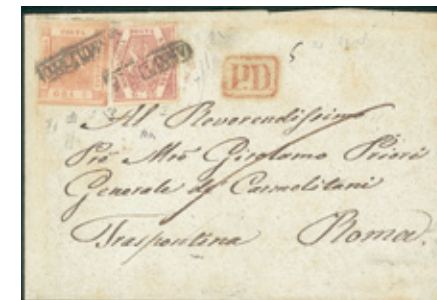 POSTA POSTA
ANNULLATO ANNULLATO
P.D
Al Reverendissimo
Prõ Mrõ Girolamo Priori
Generale de Carmelitani
Traspontina Roma